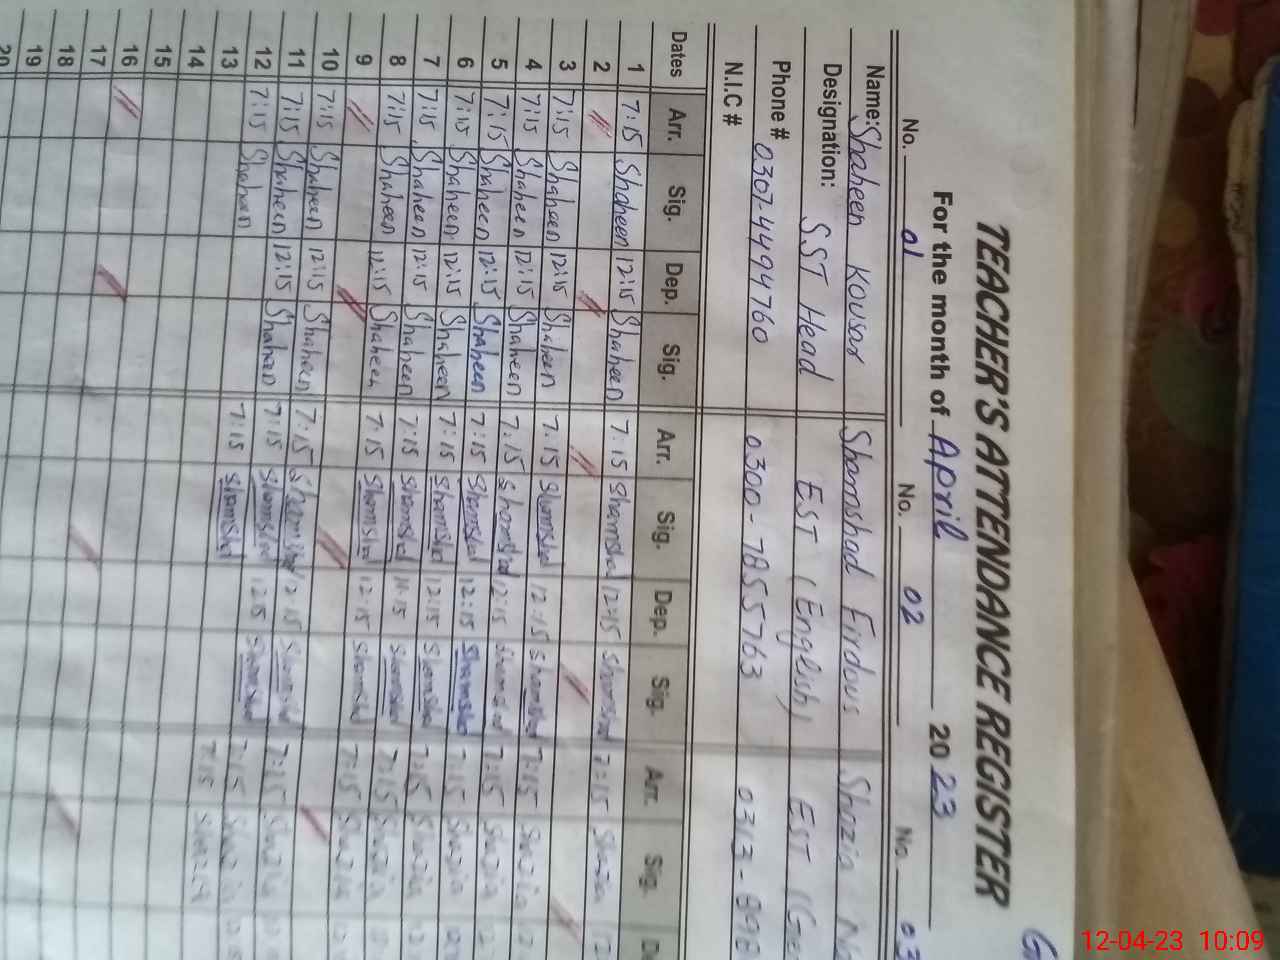 TEACHER'S ATTENDANCE REGISTER
For the month of April 2023
No. 01 No. 02 No. 03
Name: Shaheen Kousar Shamshad Firdous Shazia
Designation: SST Head EST (English) EST
Phone # 0307-4494760 0300-7855763 0313-898
N.I.C #
Dates Arr. Sig. Dep. Sig. Arr. Sig. Dep. Sig. Arr. Sig.
1 7:15 Shaheen 12:15 Shaheen 7:15 Shamshad 12:15 Shamshad 7:15 Shazia 12
2
3 7:15 Shaheen 12:15 Shaheen 7:15 Shamshad 12:15 Shamshad 7:15 Shazia 12
4 7:15 Shaheen 12:15 Shaheen 7:15 Shamshad 12:15 Shamshad 7:15 Shazia 12
5 7:15 Shaheen 12:15 Shaheen 7:15 Shamshad 12:15 Shamshad 7:15 Shazia
6 7:15 Shaheen 12:15 Shaheen 7:15 Shamshad 12:15 Shamshad 7:15 Shazia 12
7 7:15 Shaheen 12:15 Shaheen 7:15 Shamshad Shamshad 7:15 Shazia
8 7:15 Shaheen 12:15 Shaheen 7:15 Shamshad 12:15 Shamshad 7:15 Shazia
9
10 7:15 Shaheen 12:15 Shaheen 7:15 Shamshad 12:15 Shamshad 7:15 Shazia
11 7:15 Shaheen 12:15 Shaheen 7:15 Shamshad 12:15 Shamshad 7:15 Shazia
12 7:15 Shaheen 7:15 Shamshad 7:15 Shazia
13
14
15
16
17
18
19
20
12-04-23 10:09